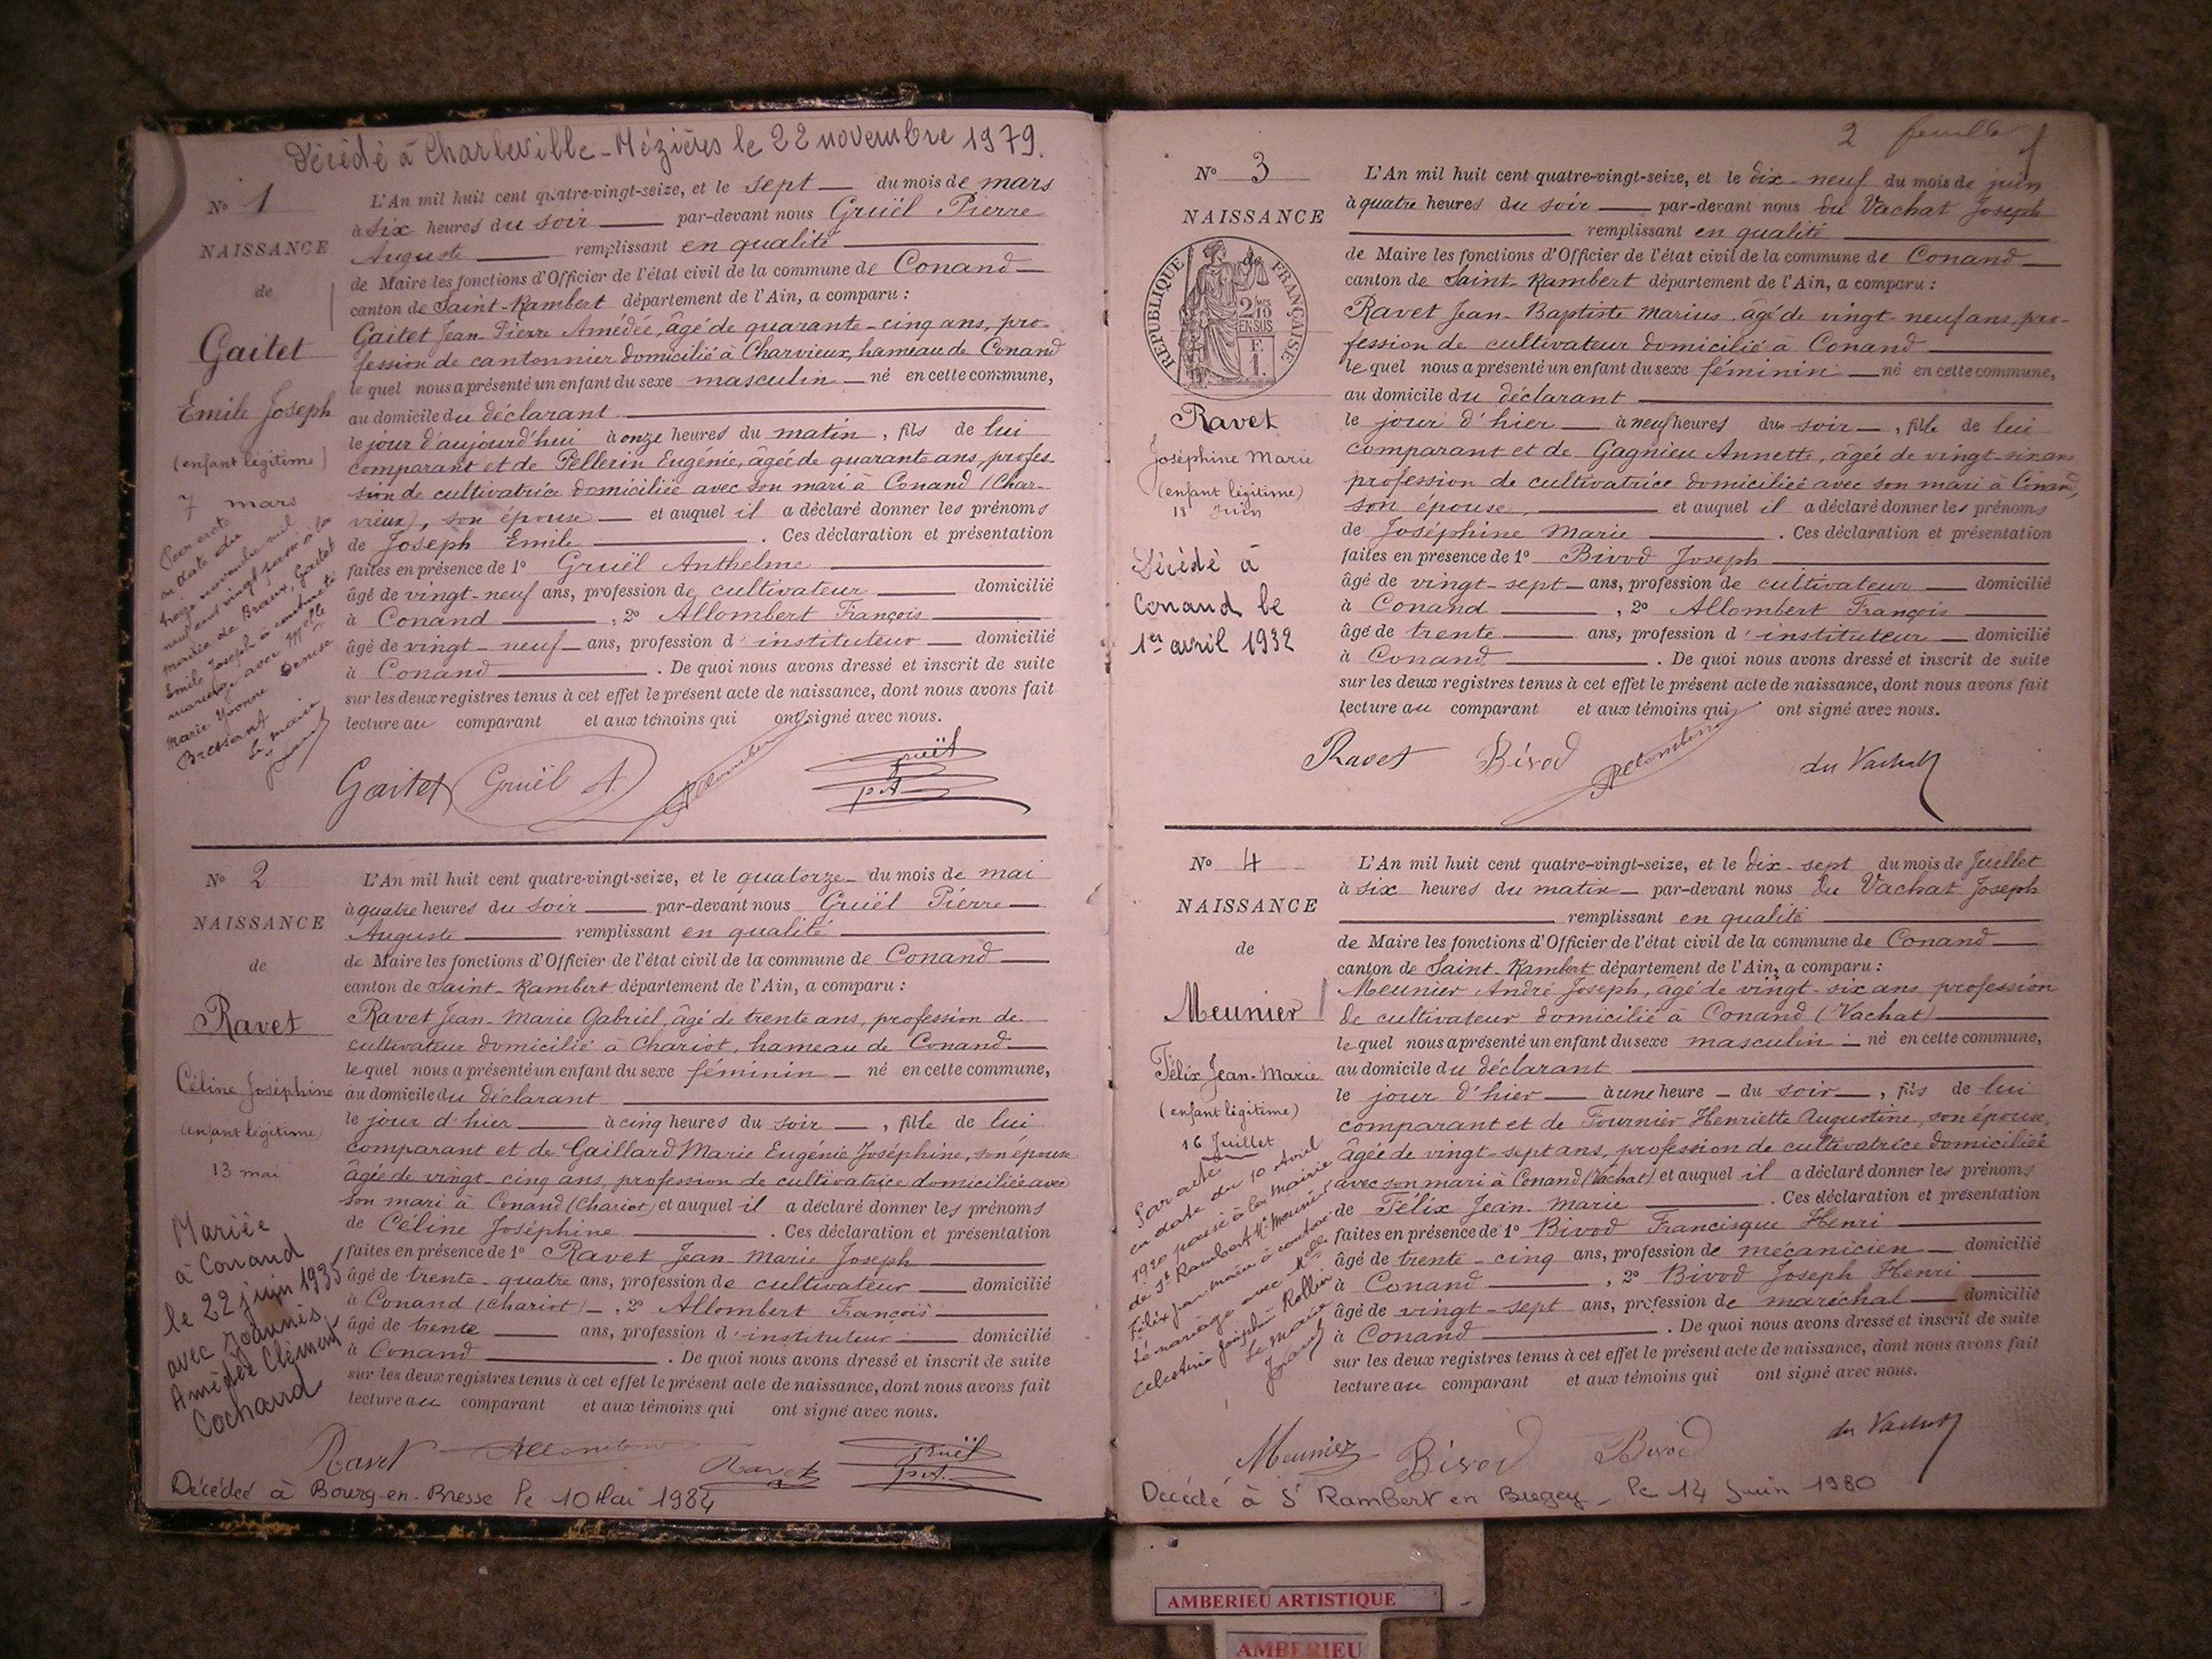 Décédé à Charleville-Mézières le 22 novembre 1979.
No 1
NAISSANCE
de
Gaitet
Emile Joseph
(enfant légitime)
7 mars
Par acte
en date du
treize novembre mil
neuf cent vingt passé à la
mairie de Braux, Gaitet
Emile Joseph a contracté
mariage avec
Marie Yvonne Denise
Bressant
Le maire
L'An mil huit cent quatre-vingt-seize, et le sept du mois de mars
à six heures du soir par-devant nous Gruël Pierre
Auguste remplissant en qualité
de Maire les fonctions d'Officier de l'état civil de la commune de Conand
canton de Saint-Rambert département de l'Ain, a comparu :
Gaitet Jean-Pierre Amédée, âgé de quarante-cinq ans, pro-
fession de cantonnier domicilié à Charvieux, hameau de Conand
lequel nous a présenté un enfant du sexe masculin né en cette commune,
au domicile du déclarant
le jour d'aujourd'hui à onze heures du matin, fils de lui
comparant et de Pellerin Eugénie, âgée de quarante ans, profes-
sion de cultivatrice domiciliée avec son mari à Conand (Char-
vieux), son épouse et auquel il a déclaré donner les prénoms
de Joseph Emile . Ces déclaration et présentation
faites en présence de 1º Gruël Anthelme
âgé de vingt-neuf ans, profession de cultivateur domicilié
à Conand , 2º Allombert François
âgé de vingt-neuf ans, profession d'instituteur domicilié
à Conand . De quoi nous avons dressé et inscrit de suite
sur les deux registres tenus à cet effet le présent acte de naissance, dont nous avons fait
lecture au comparant et aux témoins qui ont signé avec nous.
Gaitet Gruël A Allombert Gruël
P.A.
No 2
NAISSANCE
de
Ravet
Céline Joséphine
(enfant légitime)
13 mai
Mariée
à Conand
le 22 juin 1935
avec Joannès
Amédée Clément
Cochand
L'An mil huit cent quatre-vingt-seize, et le quatorze du mois de mai
à quatre heures du soir par-devant nous Gruël Pierre
Auguste remplissant en qualité
de Maire les fonctions d'Officier de l'état civil de la commune de Conand
canton de Saint-Rambert département de l'Ain, a comparu :
Ravet Jean-Marie Gabriel, âgé de trente ans, profession de
cultivateur domicilié à Chariot, hameau de Conand
lequel nous a présenté un enfant du sexe féminin né en cette commune,
au domicile du déclarant
le jour d'hier à cinq heures du soir, fille de lui
comparant et de Gaillard Marie Eugénie Joséphine, son épouse
âgée de vingt-cinq ans, profession de cultivatrice domiciliée avec
son mari à Conand (Chariot) et auquel il a déclaré donner les prénoms
de Céline Joséphine . Ces déclaration et présentation
faites en présence de 1º Ravet Jean Marie Joseph
âgé de trente-quatre ans, profession de cultivateur domicilié
à Conand (Chariot) , 2º Allombert François
âgé de trente ans, profession d'instituteur domicilié
à Conand . De quoi nous avons dressé et inscrit de suite
sur les deux registres tenus à cet effet le présent acte de naissance, dont nous avons fait
lecture au comparant et aux témoins qui ont signé avec nous.
Ravet Allombert Ravet Gruël
P.A.
Décédée à Bourg-en-Bresse le 10 Mai 1984
2 feuille
No 3
NAISSANCE
de
RÉPUBLIQUE FRANÇAISE
2/10
EN SUS
F.
1.
Ravet
Joséphine Marie
(enfant légitime)
18 Juin
Décédé à
Conand le
1er avril 1932
L'An mil huit cent quatre-vingt-seize, et le dix-neuf du mois de juin
à quatre heures du soir par-devant nous du Vachat Joseph
remplissant en qualité
de Maire les fonctions d'Officier de l'état civil de la commune de Conand
canton de Saint-Rambert département de l'Ain, a comparu :
Ravet Jean-Baptiste Marius, âgé de vingt-neuf ans, pro-
fession de cultivateur domicilié à Conand
lequel nous a présenté un enfant du sexe féminin né en cette commune,
au domicile du déclarant
le jour d'hier à neuf heures du soir, fille de lui
comparant et de Gagnieu Annette, âgée de vingt-six ans
profession de cultivatrice domiciliée avec son mari à Conand,
son épouse, et auquel il a déclaré donner les prénoms
de Joséphine Marie . Ces déclaration et présentation
faites en présence de 1º Bivod Joseph
âgé de vingt-sept ans, profession de cultivateur domicilié
à Conand , 2º Allombert François
âgé de trente ans, profession d'instituteur domicilié
à Conand . De quoi nous avons dressé et inscrit de suite
sur les deux registres tenus à cet effet le présent acte de naissance, dont nous avons fait
lecture au comparant et aux témoins qui ont signé avec nous.
Ravet Bivod Allombert du Vachat
No 4
NAISSANCE
de
Meunier
Félix Jean-Marie
(enfant légitime)
16 Juillet
Par acte
en date du 10 Avril
1920 passé à la mairie
de St Rambert Mr Meunier
Félix Jean marie a contrac-
té mariage avec Melle
Célestine Joséphine Rollin
Le Maire
L'An mil huit cent quatre-vingt-seize, et le dix-sept du mois de Juillet
à six heures du matin par-devant nous Du Vachat Joseph
remplissant en qualité
de Maire les fonctions d'Officier de l'état civil de la commune de Conand
canton de Saint-Rambert département de l'Ain, a comparu :
Meunier André Joseph, âgé de vingt-six ans profession
de cultivateur domicilié à Conand (Vachat)
lequel nous a présenté un enfant du sexe masculin né en cette commune,
au domicile du déclarant
le jour d'hier à une heure du soir, fils de lui
comparant et de Fournier Henriette Augustine, son épouse,
âgée de vingt-sept ans, profession de cultivatrice domiciliée
avec son mari à Conand (Vachat) et auquel il a déclaré donner les prénoms
de Félix Jean-Marie . Ces déclaration et présentation
faites en présence de 1º Bivod Francisque Henri
âgé de trente-cinq ans, profession de mécanicien domicilié
à Conand , 2º Bivod Joseph Henri
âgé de vingt-sept ans, profession de maréchal domicilié
à Conand . De quoi nous avons dressé et inscrit de suite
sur les deux registres tenus à cet effet le présent acte de naissance, dont nous avons fait
lecture au comparant et aux témoins qui ont signé avec nous.
Meunier Bivod Bivod du Vachat
Décédé à St Rambert en Bugey, le 14 Juin 1980
AMBERIEU ARTISTIQUE
AMBERIEU